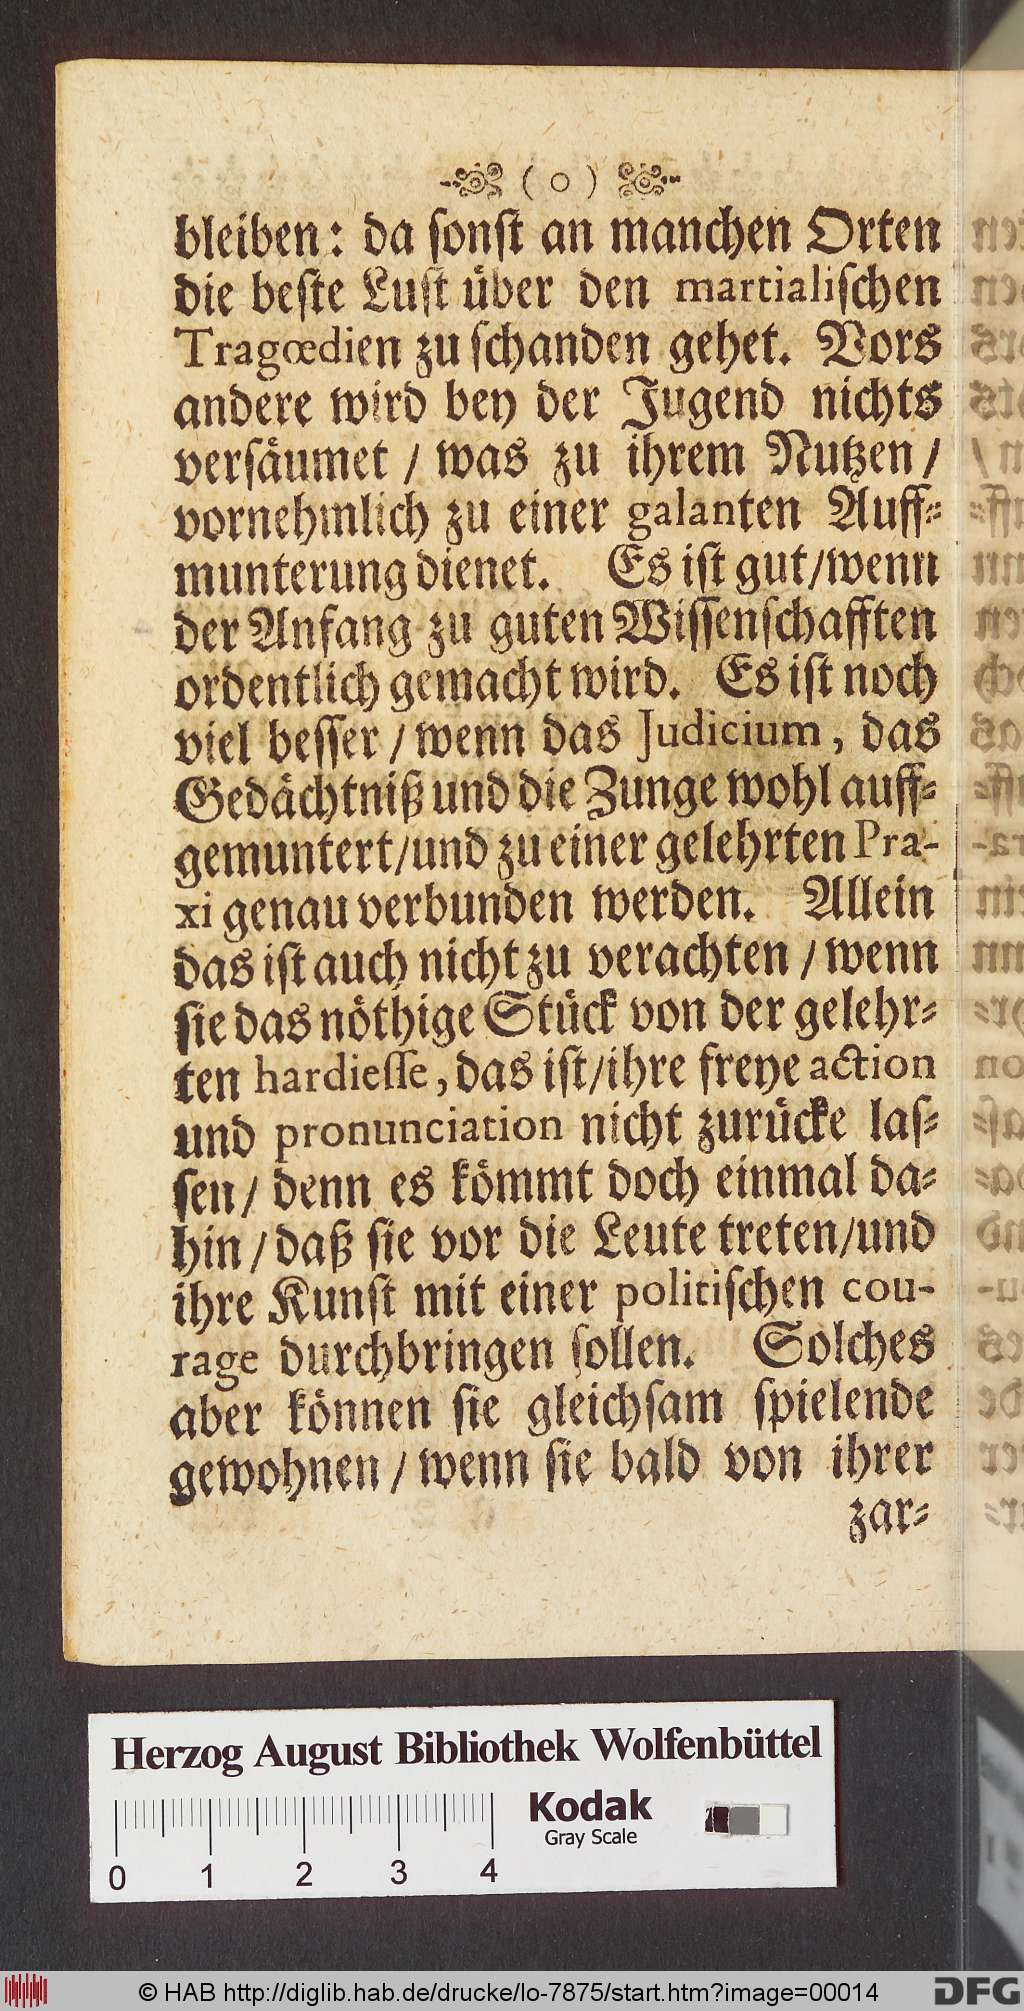 ( o )
bleiben: da ſonſt an manchen Orten
die beſte Luſt uͤber den martialiſchen
Tragœdien zu ſchanden gehet. Vors
andere wird bey der Jugend nichts
verſaͤumet / was zu ihrem Nutzen /
vornehmlich zu einer galanten Auff⸗
munterung dienet. Es iſt gut/wenn
der Anfang zu guten Wiſſenſchafften
ordentlich gemacht wird. Es iſt noch
viel beſſer / wenn das Judicium, das
Gedaͤchtniß und die Zunge wohl auff⸗
gemuntert/und zu einer gelehrten Pra-
xi genau verbunden werden. Allein
das iſt auch nicht zu verachten / wenn
ſie das noͤthige Stuͤck von der gelehr⸗
ten hardieſſe, das iſt/ihre freye action
und pronunciation nicht zuruͤcke laſ⸗
ſen/ denn es koͤmmt doch einmal da⸗
hin / daß ſie vor die Leute treten/und
ihre Kunſt mit einer politiſchen cou-
rage durchbringen ſollen. Solches
aber koͤnnen ſie gleichſam ſpielende
gewohnen / wenn ſie bald von ihrer
zar⸗
Herzog August Bibliothek Wolfenbüttel
Kodak
Gray Scale
0 1 2 3 4
© HAB http://diglib.hab.de/drucke/lo-7875/start.htm?image=00014
DFG